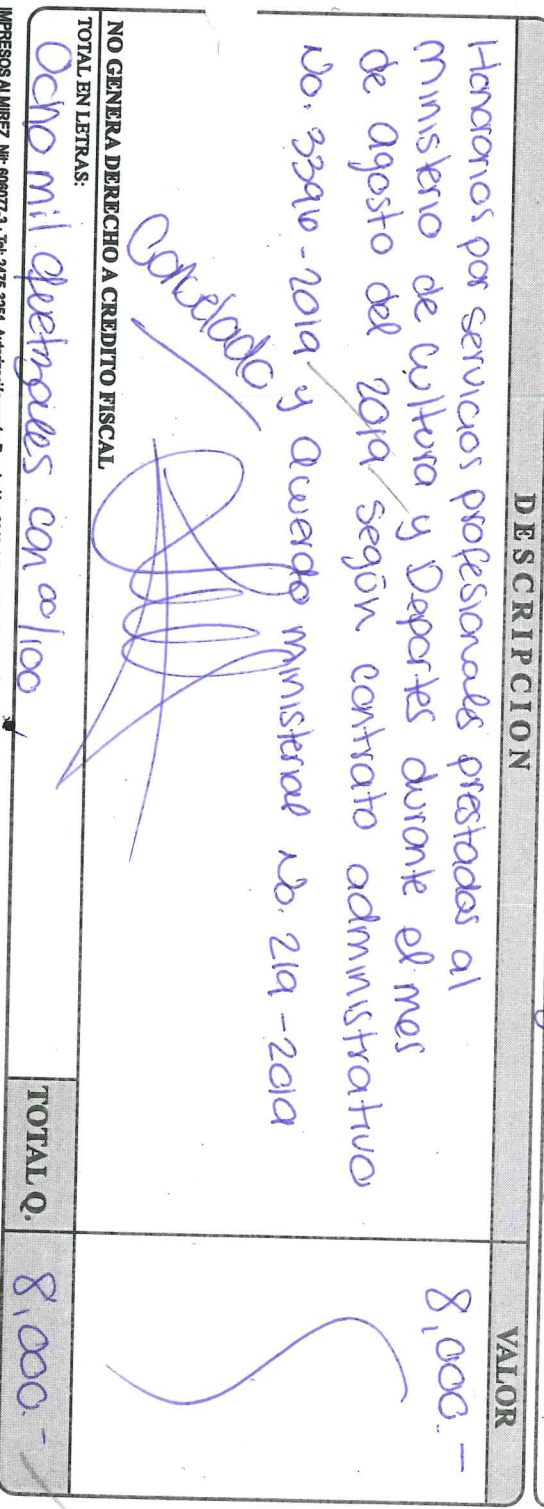 DESCRIPCION VALOR
Honorarios por servicios profesionales prestados al 8,000.-
Ministerio de Cultura y Deportes durante el mes
de agosto del 2019 según contrato administrativo
No. 3396-2019 y acuerdo ministerial No. 219-2019
Cancelado
NO GENERA DERECHO A CREDITO FISCAL
TOTAL EN LETRAS:
Ocho mil quetzales con 00/100
TOTAL Q. 8,000.-
IMPRESOS ALMIREZ Nit: 606077-3 - Tel: 2475-3251